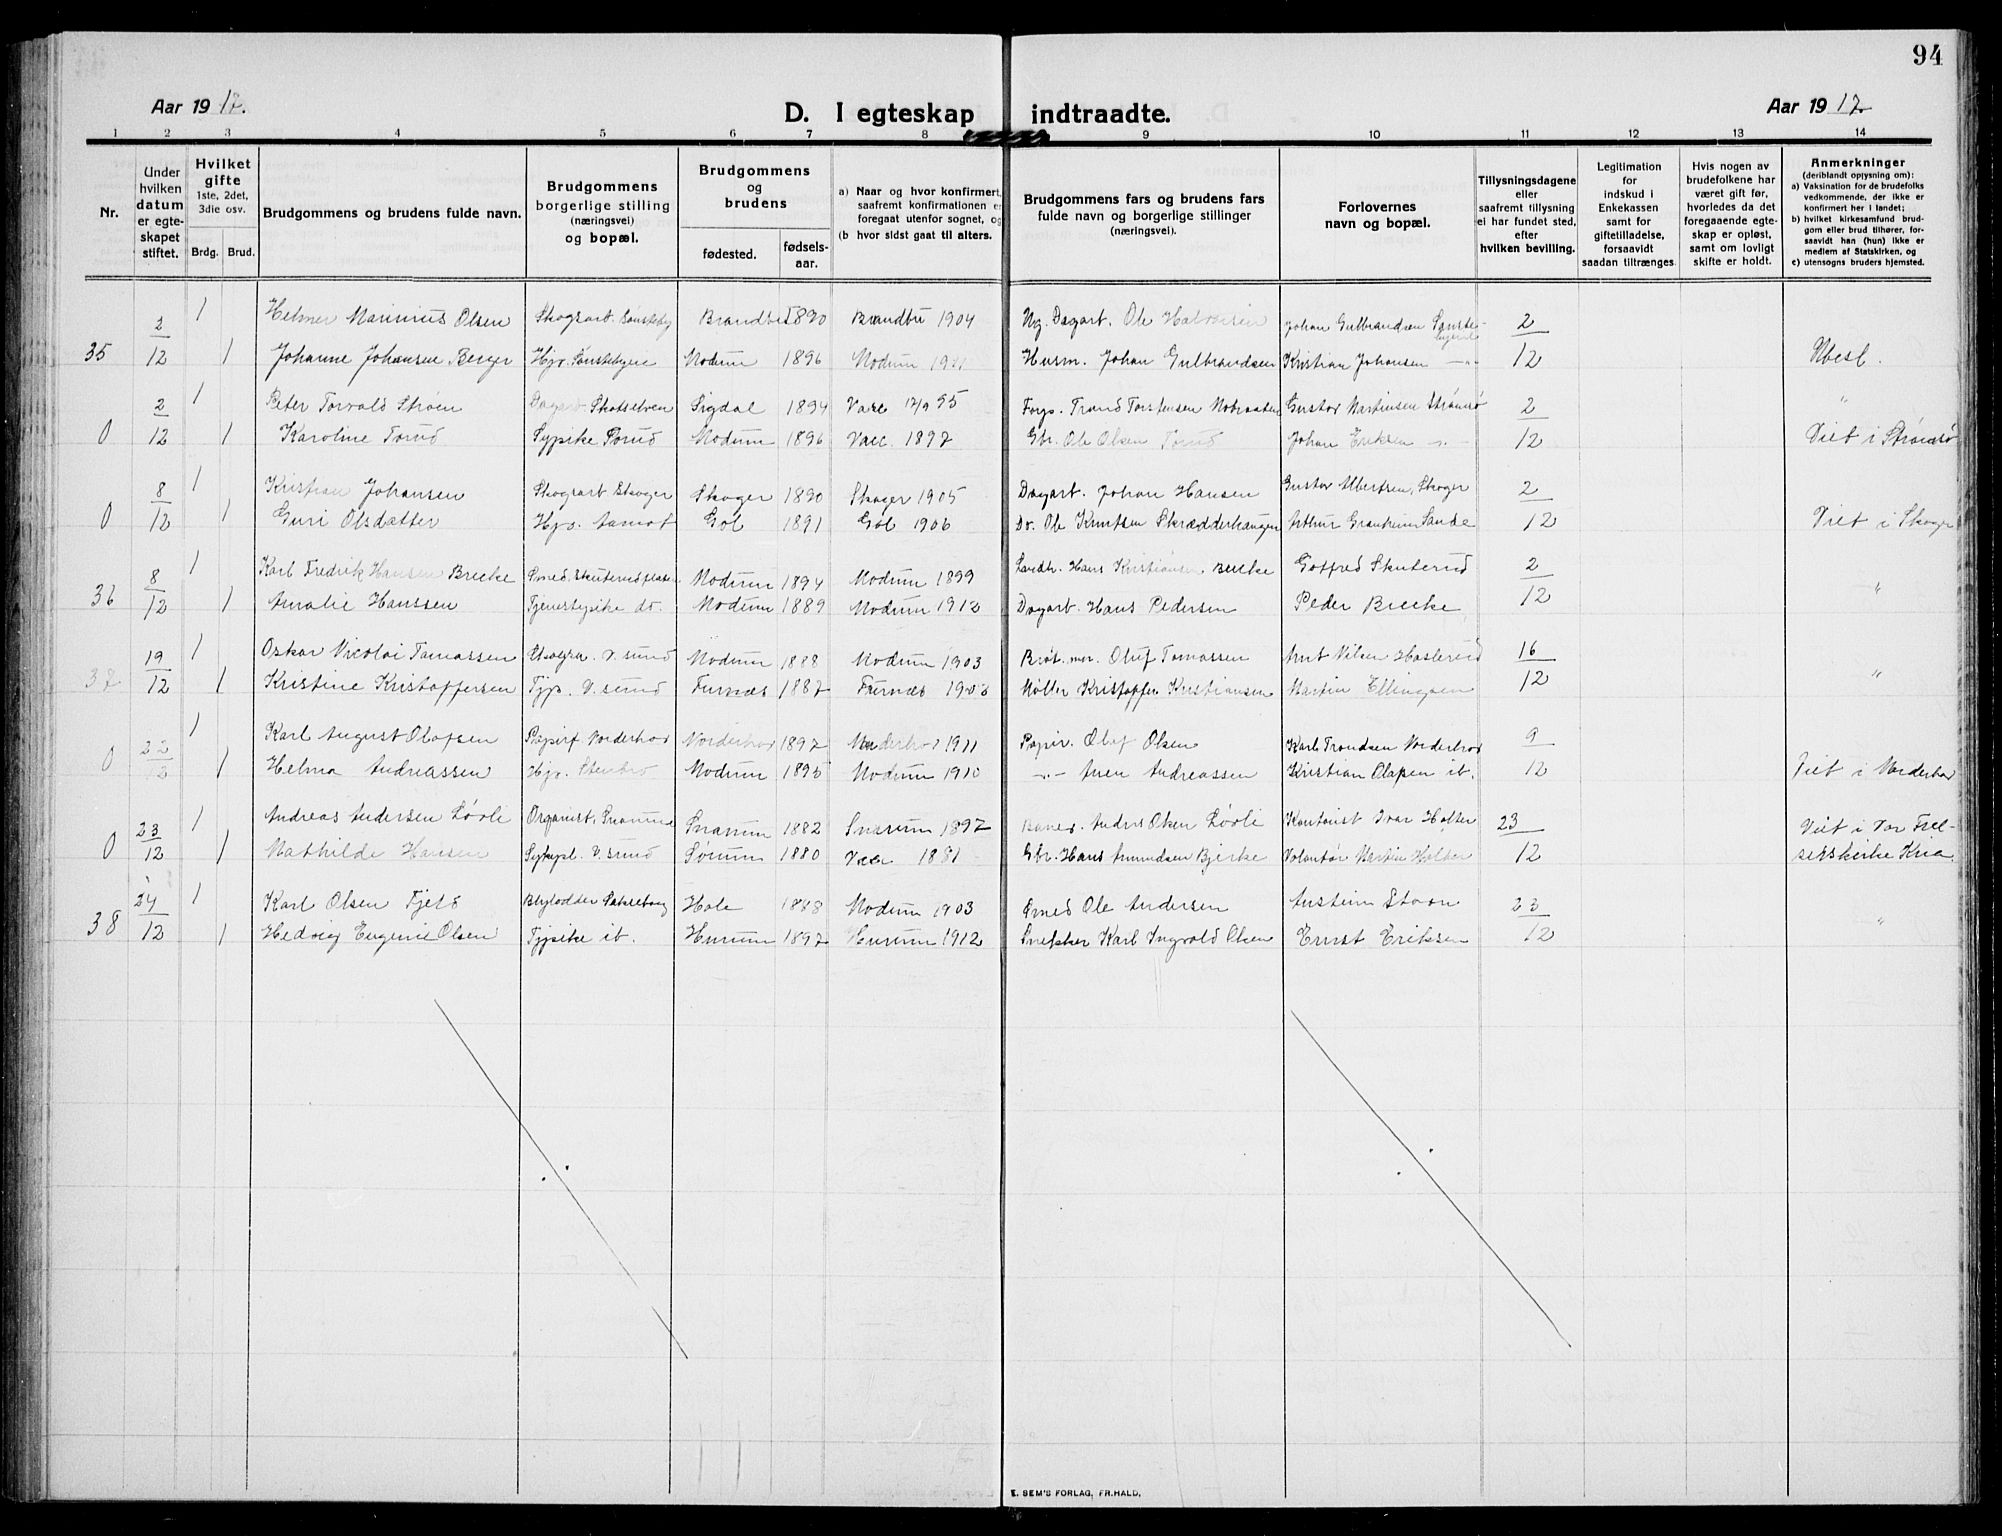 94
Aar 1917.
D. I egteskap indtraadte.
Aar 1917
1 2 3 4 5 6 7 8 9 10 11 12 13 14
Nr.
Under hvilken datum er egteskapet stiftet.
Hvilket gifte 1ste, 2det, 3die osv.
Brdg. Brud.
Brudgommens og brudens fulde navn.
Brudgommens borgerlige stilling (næringsvei) og bopæl.
Brudgommens og brudens
fødested. fødsels-aar.
a) Naar og hvor konfirmert, saafremt konfirmationen er foregaat utenfor sognet, og
(b hvor sidst gaat til alters.
Brudgommens fars og brudens fars fulde navn og borgerlige stillinger (næringsvei).
Forlovernes navn og bopæl.
Tillysningsdagene eller saafremt tillysning ei har fundet sted, efter hvilken bevilling.
Legitimation for indskud i Enkekassen samt for giftetilladelse, forsaavidt saadan tiltrænges
Hvis nogen av brudefolkene har været gift før, hvorledes da det foregaaende egteskap er opløst, samt om lovligt skifte er holdt.
Anmerkninger (deriblandt opjysning om):
a) Vaksination for de brudefolks vedkommende, der ikke er konfirmert her i landet;
b) hvilket kirkesamfund brudgom eller brud tilhører, forsaavidt han (hun) ikke er medlem af Statskirken, og
c) utensogns bruders hjemsted.
2 1 Helmer Marinius Olsen Skogsarb. 1890 1904 Dagarb. Ole Johan Gulbrandsen 2
35 12 1 Johanne Johansen Berger Modum 1896 Modum Husm. Johan Gulbrandsen Kristian Johansen 12 Ubesl.
2 1 Peter Torvald Strøm Skotselven Sigdal 1894 Vacc 12/9 95 Gustav Martinsen Strømsø 2 "
0 12 1 Karoline Torud Sypike Torud Modum 1896 Vacc. 1897 Gbr. Ole Olsen Torud Johan Eriksen 12 Viet i Strømsø
8 1 Kristian Johansen Skogsarb Skoger Skoger 1890 Skoger 1905 Dagarb. Johan Hansen Gustav Albertsen, Skoger 2
0 12 1 Guri Olsdatter Aamot Gol 1891 Gol 1906 Do. Ole Knutsen Arthur Sande 12 Viet i Skoger
8 1 Karl Fredrik Hansen Brecke Smed. Modum 1894 Modum 1899 Landh. Hans Kristiansen Brecke Gotfred Skuterud 2 "
36 12 1 Amalie Hanssen do. Modum 1889 Modum 1912 Dagarb. Hans Pedersen Peder Brecke 12
19 1 Oskar Nicolai Tomassen V. sund Modum 1888 Modum 1903 Oluf Tomassen Arnt Nilsen 16 "
37 12 1 Kristine Kristoffersen Tjp. V. sund Furnæs 1887 Furnæs Møller Kristoffer Kristiansen Martin Ellingsen 12
22 1 Karl August Olafsen Norderhov Norderhov 1897 1911 Papir. Olaf Olsen Karl Trondsen Norderhov 9
0 12 1 Helma Andreassen Modum 1895 Modum 1910 Andreassen Kristian Olafsen ib. 12 Viet i Norderhov
23 1 Andreas Andersen Løvli Organist, Snarum Snarum 1882 Snarum 1897 Anders Olsen Løvli Kontorist Ivar Holter 23 Viet i Vor Frel-
0 12 1 Mathilde Hansen V. sund Sørum 1880 Vacc 1881 Gbr. Hans Amundsen Bjerke Volontør Martin Holter 12 serskirke Kria
24 1 Karl Olsen Fjeld Hole 1888 Modum 1903 Smed Ole Andersen 23 "
38 12 1 Hedvig Eugenie Olsen Tjpike ib. Hurum 1897 Hurum 1912 Snekker Karl Ingvald Olsen Ernst Eriksen 12
E. SEM'S FORLAG, FR.HALD.